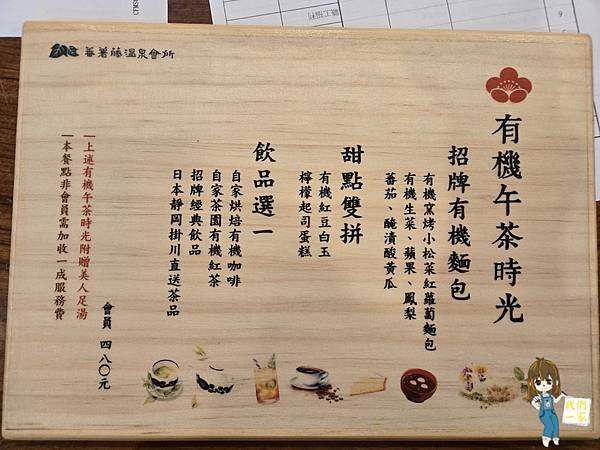 蕃薯藤溫泉會所
有機午茶時光
招牌有機麵包
有機窯烤小松菜紅蘿蔔麵包
有機生菜、蘋果、鳳梨
蕃茄、醃漬酸黃瓜
甜點雙拼
有機紅豆白玉
檸檬起司蛋糕
飲品選一
自家烘焙有機咖啡
自家茶園有機紅茶
招牌經典飲品
日本靜岡掛川直送茶品
會員 四八〇元
|上述有機午茶時光附贈美人足湯
|本餐點非會員需加收一成服務費
職工福利
9
我們一家